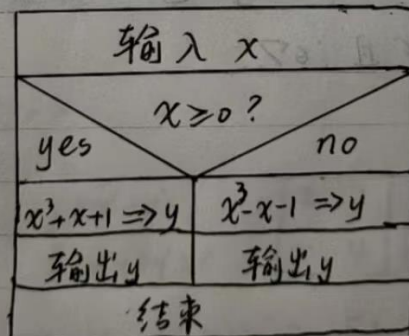 输入 x
x≥0?
yes
no
x³+x+1⇒y
x³-x-1⇒y
输出y
输出y
结束